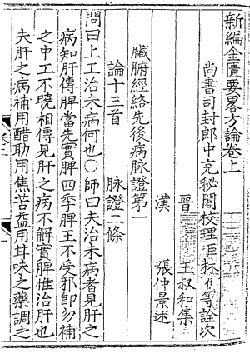 新編金匱要畧方論卷上
尚書司封郎中充秘閣校理臣林億等詮次
晉 王叔和集
漢 張仲景述
臓腑經絡先後病脉證第一
論十三首 脉證二條
問曰上工治未病何也〇師曰夫治未病者見肝之
病知肝傳脾當先實脾四季脾王不受邪即勿補
之中工不曉相傳見肝之病不解實脾惟治肝也
夫肝之病補用酢助用焦苦益用甘味之藥調之